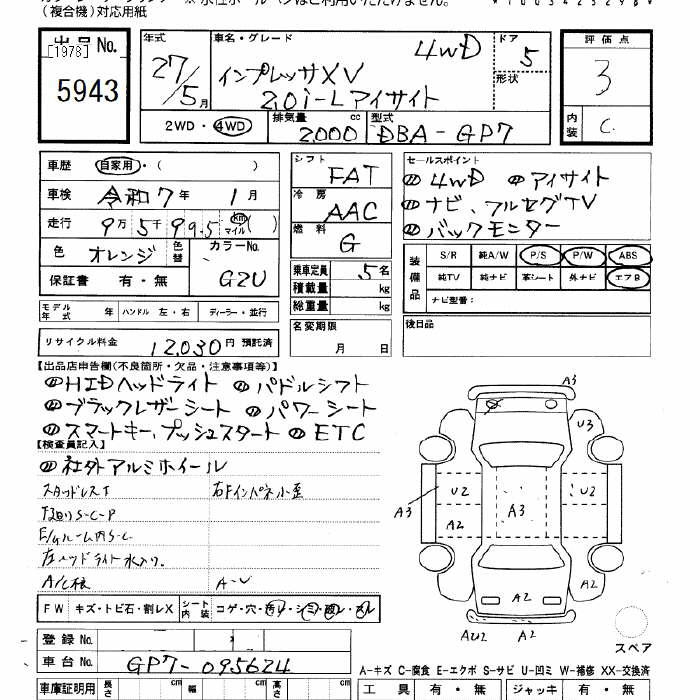 (複合機)対応用紙
出品No.
[1978]
5943
年式 27/5月
車名・グレード 4WD
インプレッサXV
2.0i-Lアイサイト
ドア 5
形状
2WD・4WD
排気量 2,000 cc
型式 DBA-GP7
評価点 3
内装 C
車歴 自家用・( )
車検 令和7年 1月
走行 9万5千99.5 km マイル ( )
色 オレンジ 色替 カラーNo. G2U
保証書 有・無
モデル年式 年 ハンドル 左・右 ディーラー・並行
リサイクル料金 12,030円 預託済
シフト FAT
冷房 AAC
燃料 G
乗車定員 5名
積載量 kg
総重量 kg
名変期限
月 日
セールスポイント
4WD アイサイト
ナビ、フルセグTV
バックモニター
装備品 S/R 純A/W P/S P/W ABS
純TV 純ナビ 革シート 外ナビ エアB
ナビ型番:
後日品
【出品店申告欄(不良箇所・欠品・注意事項等)】
HIDヘッドライト パドルシフト
ブラックレザーシート パワーシート
スマートキー、プッシュスタート ETC
【検査員記入】
社外アルミホイール
スタッドレスT 右Fインパネ小歪
下廻りS-C-P
E/gルーム内S-C
左ヘッドライト水入り.
A/C横 A-U
FW キズ・トビ石・割レX シート内装 コゲ・穴・
登録No.
車台No. GP7-095624
車庫証明用 長さ cm 幅 cm 高さ cm
A3
U3
U2
U2
A3
A3
A2
A2
A2
AU2
A2
スペア
A-キズ C-腐食 E-エクボ S-サビ U-凹ミ W-補修 XX-交換済
工具 有・無 ジャッキ 有・無